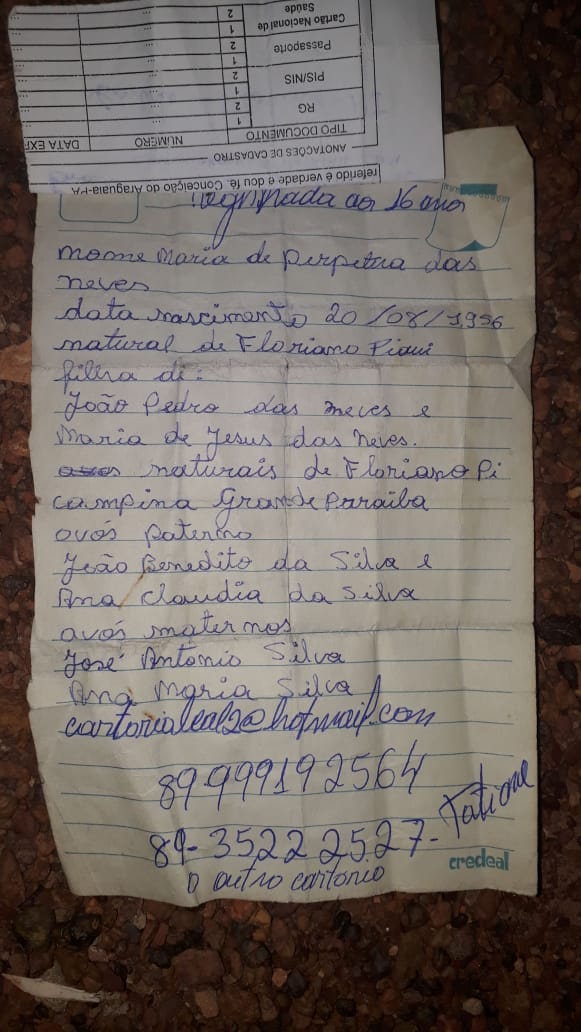 Saúde
Cartão Nacional de
2
1
Passaporte
2
1
PIS/NIS
2
1
RG
2
1
TIPO DOCUMENTO NÚMERO DATA EXP
ANOTAÇÕES DE CADASTRO
referido é verdade e dou fé. Conceição do Araguaia-PA
aos 16 anos
nome Maria de perpetua das
neves
data nascimento 20/08/1956
natural de Floriano Piaui
filha di:
João Pedro das neves e
Maria de Jesus das neves.
avos naturais de Floriano Pi
campina Grande Paraiba
avós paterno
João Benedito da Silva e
Ana claudia da Silva
avós maternos
José Antonio Silva
Ana Maria Silva
cartorialeal2@hotmail.com
89-999192564
89-3522 2527-Tatiane
o outro cartorio
credeal